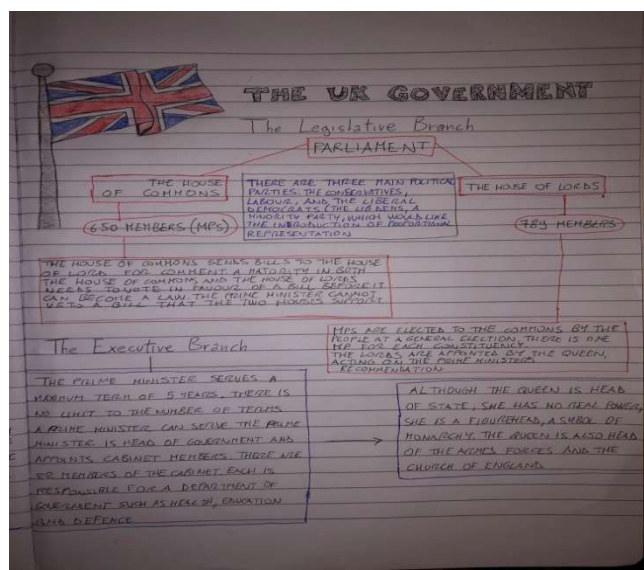 THE UK GOVERNMENT
The Legislative Branch
PARLIAMENT
THE HOUSE
OF COMMONS
650 MEMBERS (MPS)
THERE ARE THREE MAIN POLITICAL
PARTIES: THE CONSERVATIVES,
LABOUR, AND THE LIBERAL
DEMOCRATS (THE LIB DEMS, A
MINORITY PARTY, WHICH WOULD LIKE
THE INTRODUCTION OF PROPORTIONAL
REPRESENTATION
THE HOUSE OF LORDS
789 MEMBERS
THE HOUSE OF COMMONS SENDS BILLS TO THE HOUSE
OF LORD FOR COMMENT A MATORITY IN BOTH
THE HOUSE OF COMMONS AND THE HOUSE OF LORDS
NEEDS TO VOTE IN FAVOUR OF A BILL BEFORE IT
CAN BECOME A LAW. THE PRIME MINISTER CANNOT
VETO A BILL THAT THE TWO HOUSES SUPPORT
MPS ARE ELECTED TO THE COMMONS BY THE
PEOPLE AT A GENERAL ELECTION, THERE IS ONE
MP FOR EACH CONSTITUENCY.
THE LORDS ARE APPOINTED BY THE QUEEN,
ACTING ON THE PRIME MINISTERS
RECOMMENDATION
The Executive Branch
THE PRIME MINISTER SERVES A
MAXIMUM TERM OF 5 YEARS. THERE IS
NO LIMIT TO THE NUMBER OF TERMS
A PRIME MINISTER CAN SERVE THE PRIME
MINISTER IS HEAD OF GOVERNMENT AND
APPOINTS CABINET MEMBERS. THERE ARE
22 MEMBERS OF THE CABINET. EACH IS
RESPONSIBLE FOR A DEPARTMENT OF
GOVERNMENT SUCH AS HEALTH, EDUCATION
AND DEFENCE
ALTHOUGH THE QUEEN IS HEAD
OF STATE, SHE HAS NO REAL POWER,
SHE IS A FIGUREHEAD, A SYMBOL OF
MONARCHY. THE QUEEN IS ALSO HEAD
OF THE ARMED FORCES AND THE
CHURCH OF ENGLAND